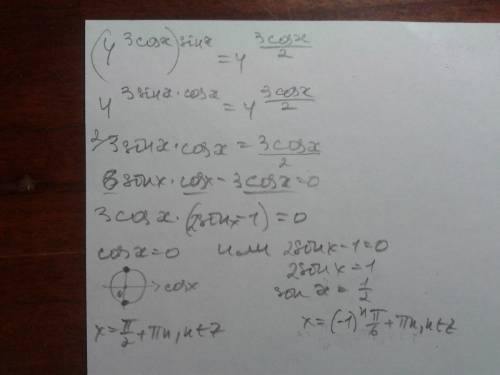 (4^{3cosx})^{sinx} = 4^{\frac{3cosx}{2}}
4^{3sinx·cosx} = 4^{\frac{3cosx}{2}}
2/ 3sinx·cosx = \frac{3cosx}{2}
6sinx·cosx - 3cosx = 0
3cosx·(2sinx-1) = 0
cosx = 0 или 2sinx-1=0
2sinx = 1
cosx sinx = \frac{1}{2}
x = \frac{π}{2} + πn, n∈Z x = (-1)^n \frac{π}{6} + πn, n∈Z